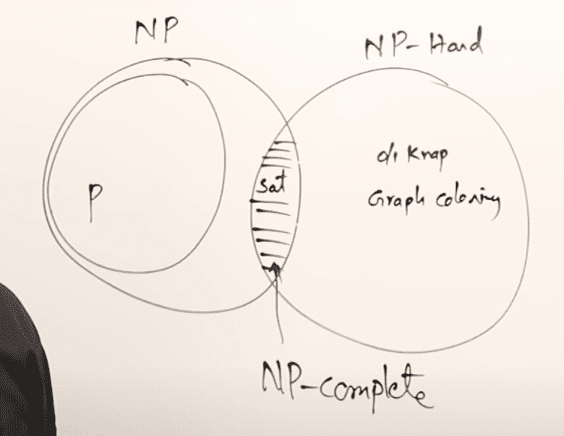 NP
NP-Hard
0/1 Knap
Graph coloring
Sat
P
NP-complete